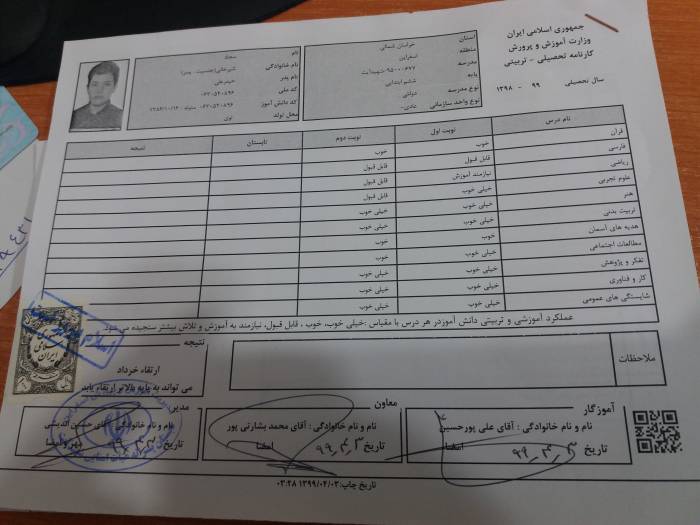 جمهوری اسلامی ایران
وزارت آموزش و پرورش
کارنامه تحصیلی - تربیتی
سال تحصیلی ۹۹ - ۱۳۹۸
استان خراسان شمالی
منطقه اسفراین
مدرسه
پایه ششم ابتدایی
نوع مدرسه دولتی
نوع واحد سازمانی عادی-
نام سجاد
نام خانوادگی
نام پدر
کد ملی ۰۶۷۰۵۲۰۸۹۶
کد دانش آموز ۰۶۷۰۵۲۰۸۹۶ متولد: ۱۳۸۶/۱۰/۱۴
محل تولد
نام درس نوبت اول نوبت دوم تابستان نتیجه
قرآن خوب خوب
فارسی قابل قبول قابل قبول
ریاضی نیازمند آموزش قابل قبول
علوم تجربی خیلی خوب قابل قبول
هنر خیلی خوب خیلی خوب
تربیت بدنی خیلی خوب خیلی خوب
هدیه های آسمان خوب خوب
مطالعات اجتماعی خیلی خوب خوب
تفکر و پژوهش خیلی خوب خیلی خوب
کار و فناوری خیلی خوب خیلی خوب
شایستگی های عمومی خیلی خوب خیلی خوب
عملکرد آموزشی و تربیتی دانش آموزدر هر درس با مقیاس :خیلی خوب، خوب ، قابل قبول، نیازمند به آموزش و تلاش بیشتر سنجیده می شود
ملاحظات
نتیجه
ارتقاء خرداد
می تواند به پایه بالاتر ارتقاء یابد
آموزگار
نام و نام خانوادگی : آقای علی پورحسین
تاریخ ۹۹/۴/۳ امضا
معاون
نام و نام خانوادگی : آقای محمد بشارتی پور
تاریخ ۹۹/۴/۳ امضا
مدیر
نام و نام خانوادگی : آقای حسین
تاریخ ۹۹/۴/۳ مهر و امضا
تاریخ چاپ:۱۳۹۹/۰۴/۰۳ ۰۳:۲۸